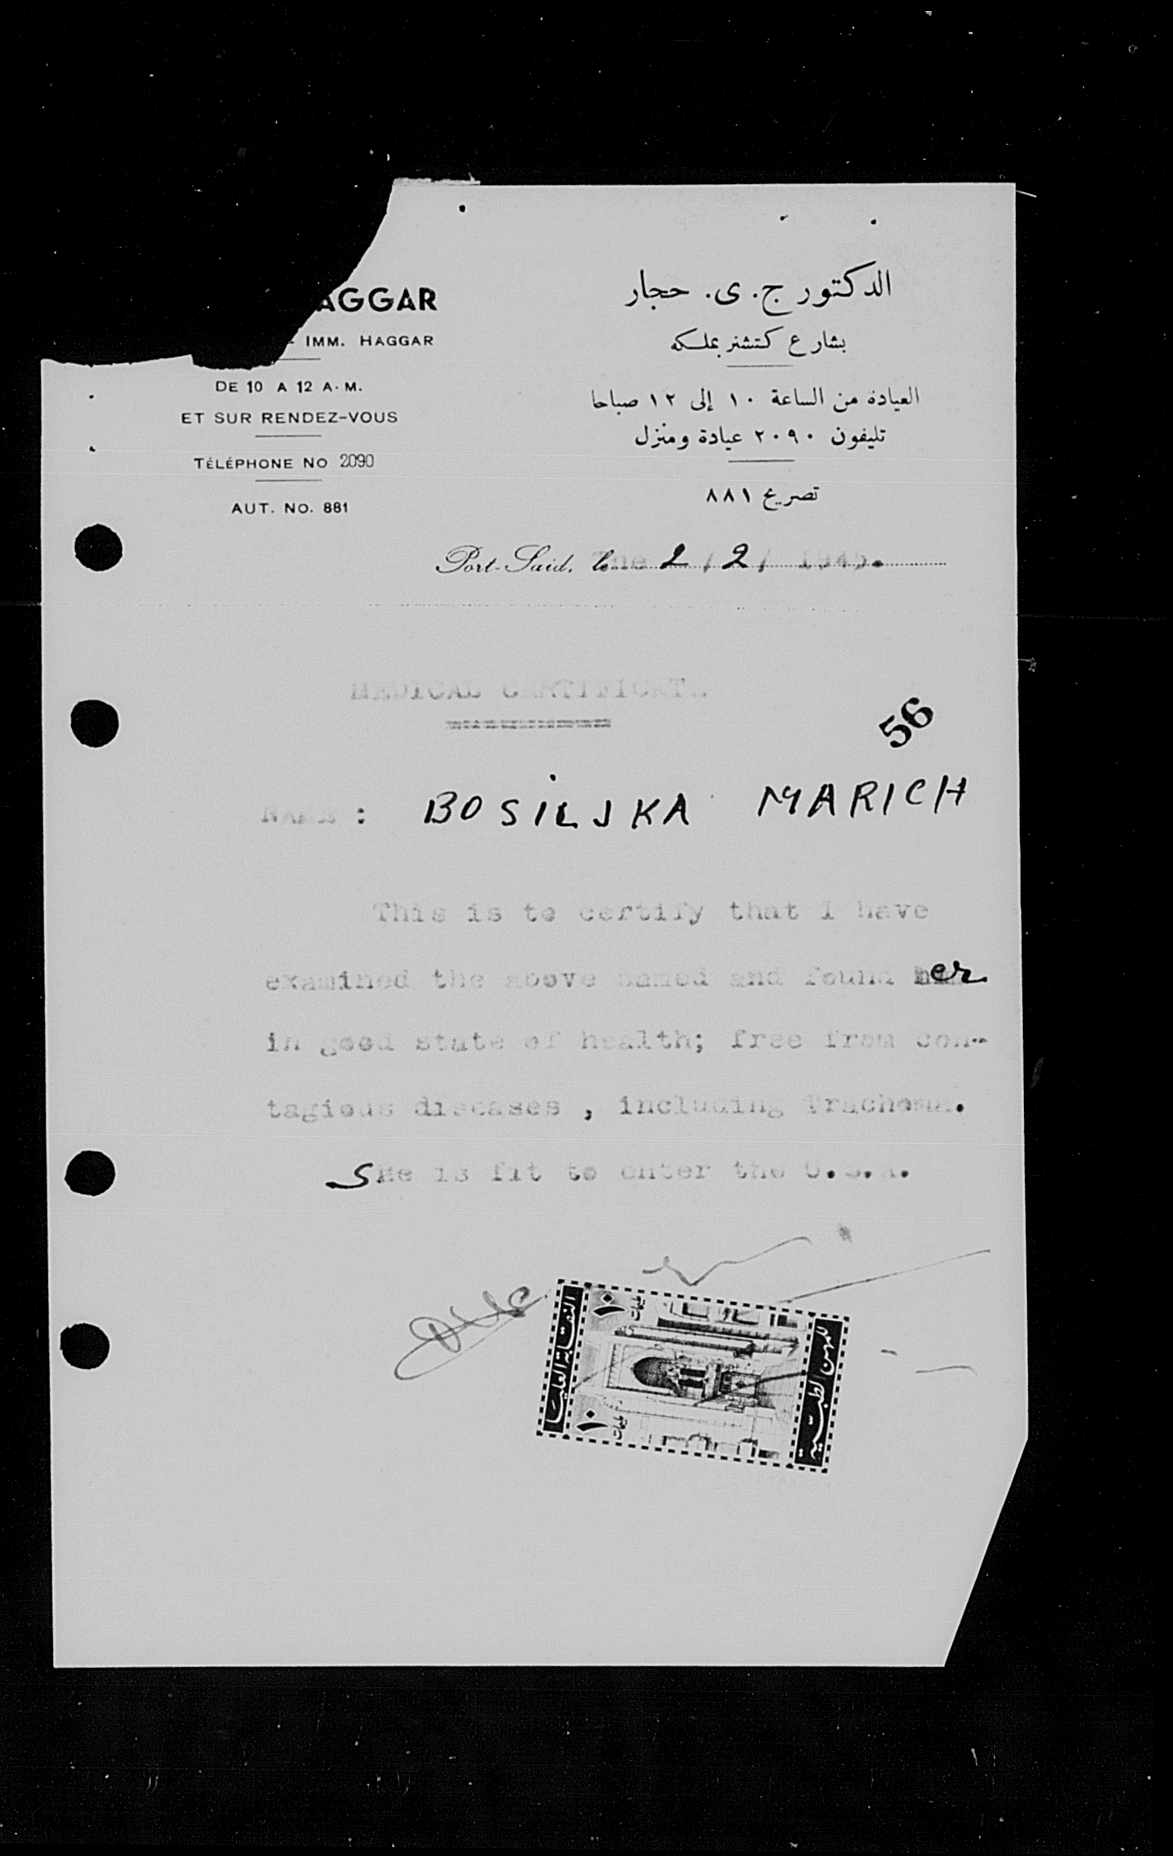 AGGAR
IMM. HAGGAR
DE 10 A 12 A.M.
ET SUR RENDEZ-VOUS
TÉLÉPHONE NO 2090
AUT. NO. 881
الدكتور ج. ى. حجار
بشارع كتشنر بملكه
العيادة من الساعة ١٠ إلى ١٢ صباحا
تليفون ٢٠٩٠ عيادة ومنزل
تصريح ٨٨١
Port-Said, le the 2 / 2 / 1945.
MEDICAL CERTIFICATE
56
NAME : BOSILJKA MARICH
This is to certify that I have
examined the above named and found her
in good state of health; free from con-
tagious diseases , including Trachoma.
She is fit to enter the U.S.A.
النقابة العليا
١٠ مليمات
١٠ مليمات
للمهن الطبية